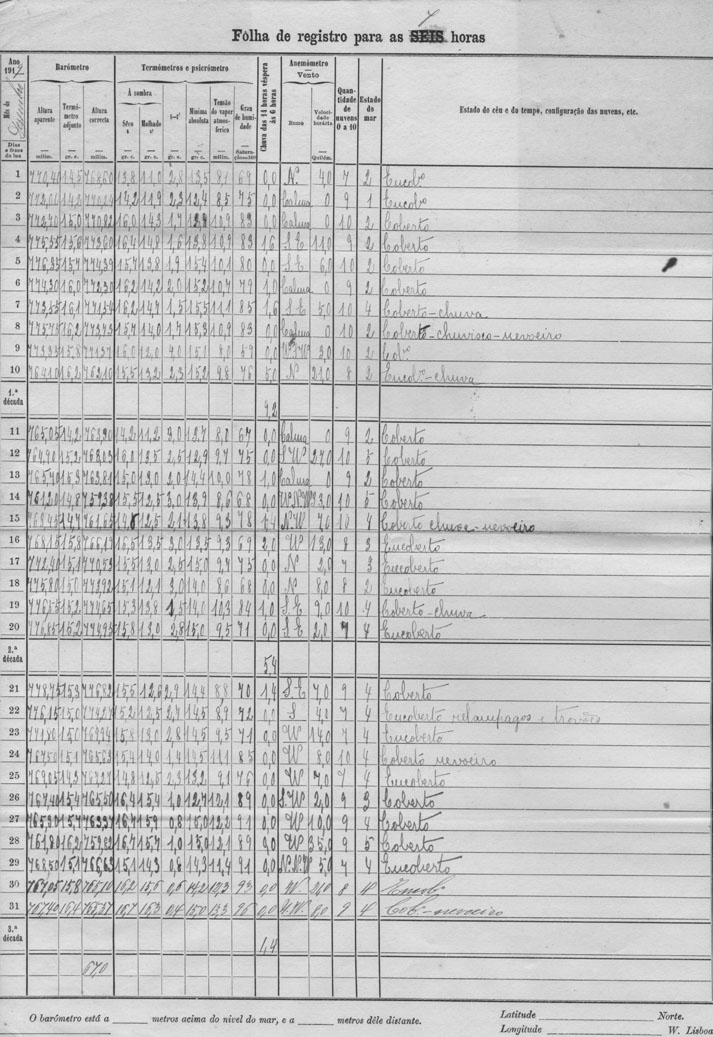 7
Fôlha de registro para as SEIS horas
Ano 191
Mês de Dezembro
Dias e fases da lua
Barómetro
Altura aparente
milím.
Termómetro adjunto
gr. c.
Altura correcta
milím.
Termómetros e psicrómetro
Á sombra
Sêco t
gr. c.
Molhado t'
gr. c.
t—t'
gr. c.
Mínima absoluta
gr. c.
Tensão do vapor atmosférico
milím.
Grau de humidade
Saturação=100
Chuva das 14 horas véspera às 6 horas
Anemómetro
Vento
Rumo
Velocidade horária
Quilóm.
Quantidade de nuvens 0 a 10
Estado do mar
Estado do céu e do tempo, configuração das nuvens, etc.
1 770,40 14,5 768,60 13,8 11,0 2,8 13,5 8,1 69 0,0 N. 4,0 7 2 Encobº
2 14,2 11,9 2,3 12,4 8,5 75 0,0 Calma 0 9 1 Encobº
3 772,70 15,0 770,82 16,0 14,3 1,7 12,8 10,9 83 0,0 Calma 0 10 2 Coberto
4 775,55 15,6 773,60 16,4 14,8 1,6 13,8 10,9 83 1,6 S.E 11,0 9 2 Coberto
5 776,35 15,7 774,39 15,7 13,8 1,9 15,4 10,1 80 0,0 S.E 6,0 10 2 Coberto
6 774,30 16,0 772,30 16,2 14,2 2,0 15,2 10,7 79 1,0 Calma 0 9 2 Coberto
7 773,55 16,1 771,54 16,2 14,7 1,5 15,5 11,1 85 1,6 S.E 5,0 10 4 Coberto-chuva
8 775,75 16,2 773,73 15,7 14,0 1,7 15,3 10,9 83 0,0 Calma 0 10 2 Coberto-chuvisco-nevoeiro
9 773,35 15,8 771,37 16,0 12,0 4,0 15,1 8,0 59 0,0 3,0 10 2 Cobº
10 764,10 16,2 762,10 15,5 13,2 2,3 15,2 9,8 76 5,0 N 21,0 8 2 Encobº-chuva
1.ª década
9,2
11 765,05 14,2 763,30 14,2 11,2 3,0 12,7 8,0 67 0,0 Calma 0 9 2 Coberto
12 764,90 15,2 763,03 16,0 13,5 2,5 12,9 9,7 75 0,0 S.W 27,0 10 5 Coberto
13 765,70 15,3 763,81 15,0 13,0 2,0 14,4 10,0 78 1,0 Calma 0 9 2 Coberto
14 761,20 14,8 759,38 15,5 12,5 3,0 13,9 8,6 68 0,0 W.N.W 33,0 10 5 Coberto
15 763,45 14,7 761,65 14,6 12,5 2,1 13,8 9,3 78 1,4 N.W 7,0 10 4 Coberto chuva-nevoeiro
16 768,15 15,8 766,19 16,5 13,5 3,0 13,5 9,3 69 2,0 W 13,0 8 3 Encoberto
17 772,40 15,1 770,53 15,5 13,0 2,5 15,0 9,7 75 0,0 N 2,0 7 3 Encoberto
18 775,80 15,0 773,92 15,1 12,1 3,0 14,0 8,6 68 0,0 N 8,0 8 2 Encoberto
19 776,55 15,2 774,65 15,3 13,8 1,5 14,0 10,3 84 1,0 S.E 9,0 10 4 Coberto-chuva
20 776,85 15,2 774,95 15,8 13,0 2,8 15,0 9,5 71 0,0 S.E 2,0 7 4 Encoberto
2.ª década
5,4
21 778,75 15,3 776,82 15,5 12,6 2,9 14,4 8,8 70 1,4 S.E 7,0 9 4 Coberto
22 776,15 15,0 774,27 15,2 12,5 2,7 14,5 8,9 72 0,0 S 4,0 7 4 Encoberto relampagos e trovões
23 15,0 15,8 13,0 2,8 14,5 9,5 71 0,0 W 14,0 7 4 Encoberto
24 767,50 15,1 765,63 15,4 14,0 1,4 14,5 11,1 85 0,0 W 8,0 10 4 Coberto nevoeiro
25 769,05 14,3 767,27 14,8 12,5 2,3 13,2 9,1 76 0,0 W 7,0 7 4 Encoberto
26 767,40 15,4 765,50 16,4 15,4 1,0 12,7 12,1 89 0,0 S.W 2,0 9 3 Coberto
27 765,30 15,7 763,37 16,7 15,9 0,8 15,0 12,2 91 0,0 W 10,0 9 4 Coberto
28 761,80 16,2 759,82 16,7 15,7 1,0 15,0 12,1 89 0,0 W 35,0 9 5 Coberto
29 768,50 15,1 766,63 15,1 14,3 0,8 14,3 11,4 91 0,0 N.N.W 5,0 7 4 Encoberto
30 767,05 15,8 765,10 16,2 15,6 0,6 14,2 12,3 93 0,0 W. 21,0 8 4 Encobº
31 767,40 16,4 765,37 16,7 16,3 0,4 15,0 13,3 96 0,0 0,0 9 4 Cobº-nevoeiro
3.ª década
1,4
67,0
O barómetro está a ______ metros acima do nivel do mar, e a ______ metros dêle distante.
Latitude ______ Norte.
Longitude ______ W. Lisboa